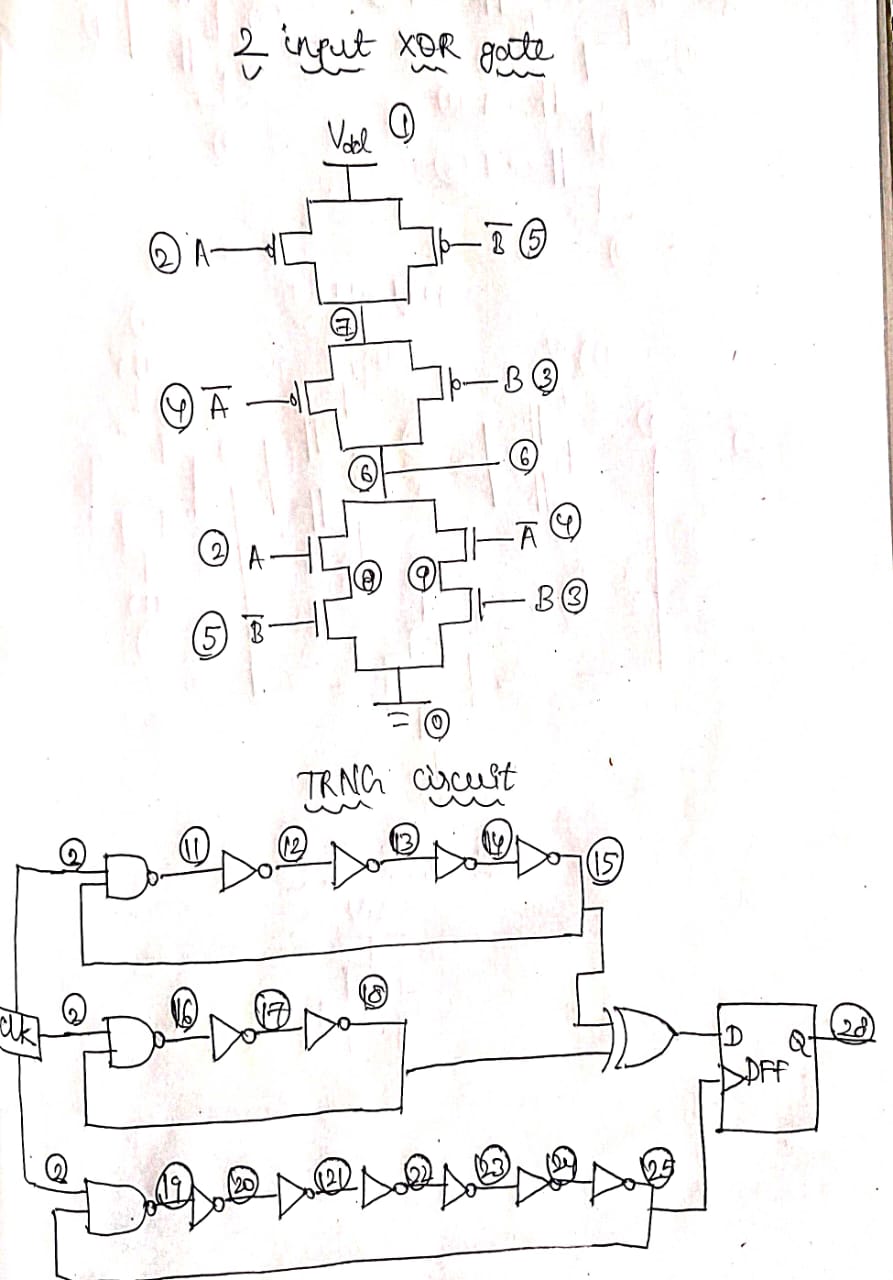 2 input XOR gate
Vdd ①
② A B̅ ⑤
⑦
④ A̅ B ③
⑥ ⑥
② A A̅ ④
⑧ ⑨
⑤ B̅ B ③
⓪
TRNG circuit
② ⑪ ⑫ ⑬ ⑭ ⑮
② ⑯ ⑰ ⑱
Clk D Q ㉘
DFF
② ⑲ ⑳ ㉑ ㉒ ㉓ ㉔ ㉕